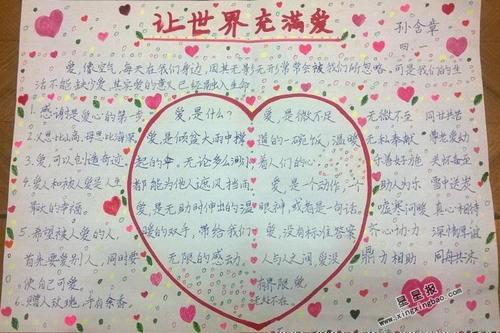 让世界充满爱
孙含章
四一
爱,像空气,每天在我们身边,因其无影无形常常会被我们所忽略,可是我们的生
活不能缺少爱,其实爱的意义已经融入生命
1.感谢是爱心的第一步
2.父恩比山高,母恩比海深
3.爱可以创造奇迹
4.爱人和被人爱是人生
最大的幸福。
5.希望被人爱的人,
首先要爱别人,同时要
使自己可爱。
6.赠人玫瑰,手有余香。
爱,是什么?
爱,是倾盆大雨中撑
起的伞,无论多么渺小
都能为他人遮风挡雨
爱,是无助时伸出的温
暖的双手,带给我们
无限的感动。
爱,是微不足
道的一碗饭,温暖
着人们的心
爱,是一个动作,一个
眼神,或者是一句话。
爱,没有标准答案
人与人之间,爱没
有界限,爱
无处不在。
无微不至 同甘共苦
无私奉献 尊老爱幼
乐善好施 关怀备至
助人为乐 雪中送炭
嘘寒问暖 真心相待
齐心协力 深情厚谊
鼎力相助 同舟共济
星星报
www.xingxingbao.com